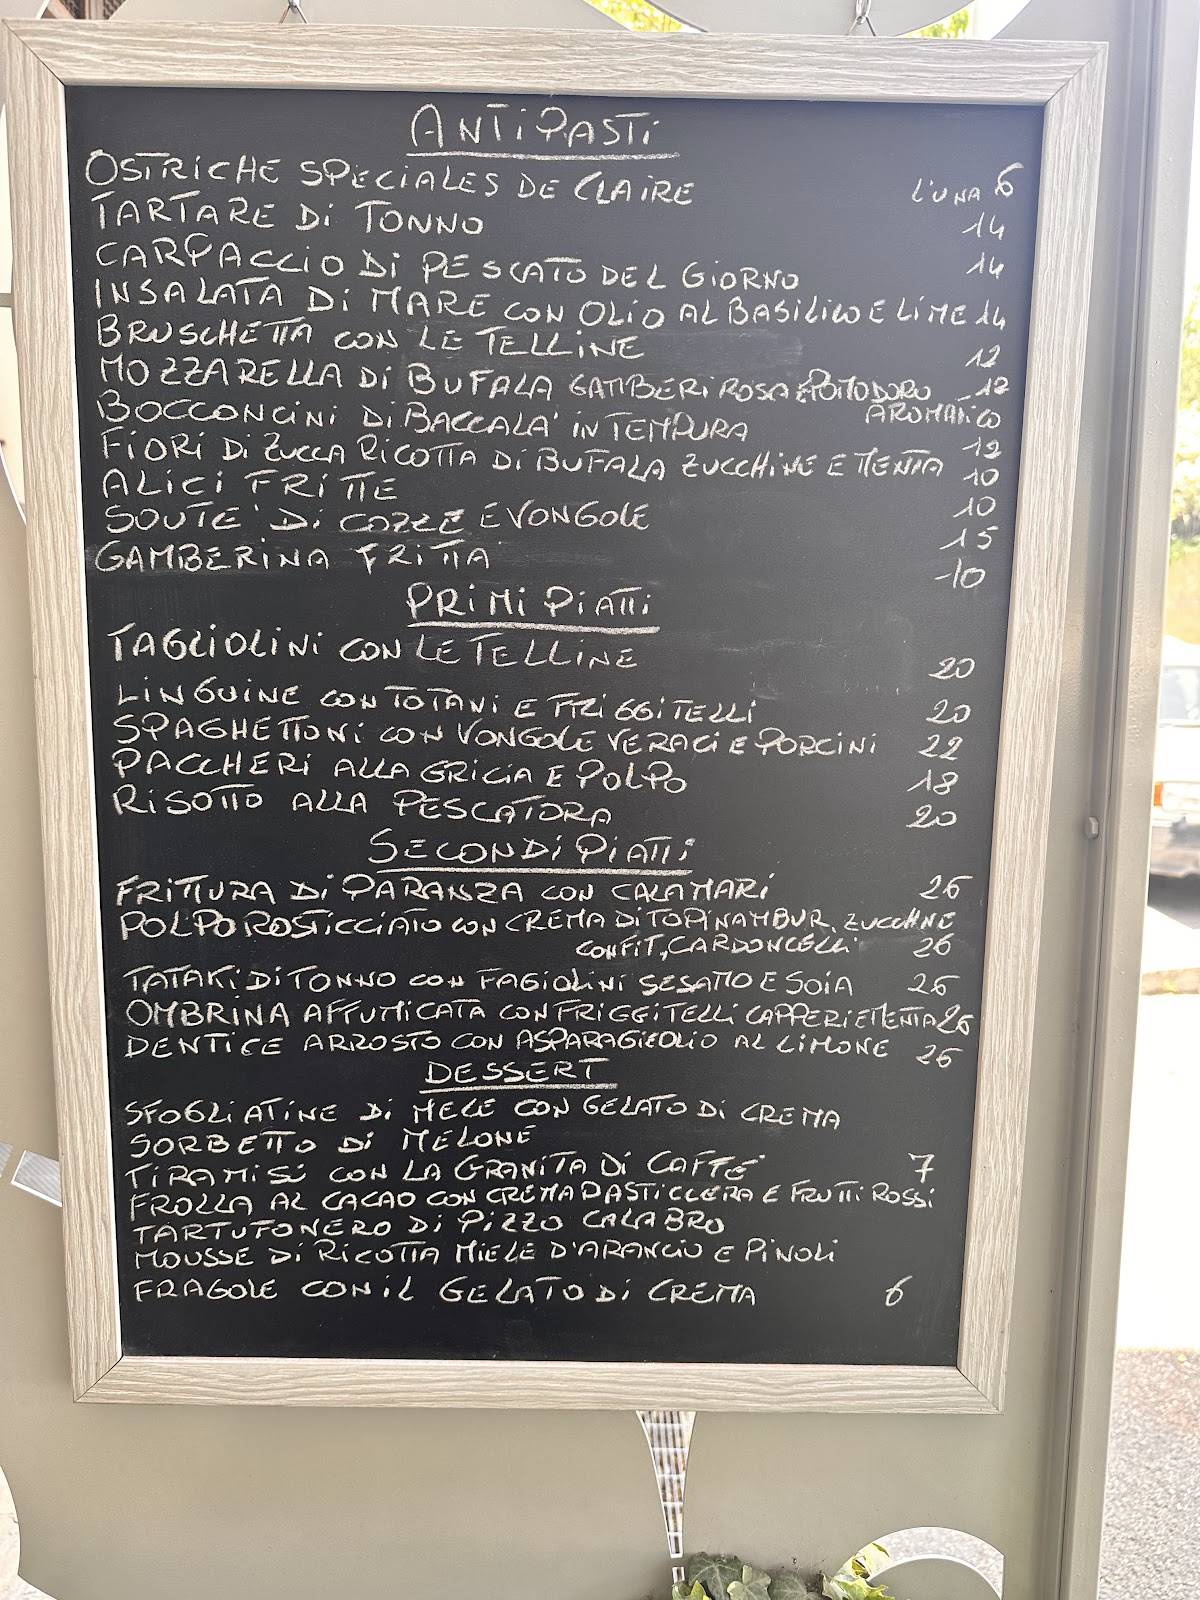 ANTIPASTI
OSTRICHE SPECIALES DE CLAIRE L'UNA 6
TARTARE DI TONNO 14
CARPACCIO DI PESCATO DEL GIORNO 14
INSALATA DI MARE CON OLIO AL BASILICO E LIME 14
BRUSCHETTA CON LE TELLINE 12
MOZZARELLA DI BUFALA GAMBERI ROSA E POMODORO 12
AROMATICO
BOCCONCINI DI BACCALA' IN TEMPURA 12
FIORI DI ZUCCA RICOTTA DI BUFALA ZUCCHINE E MENTA 10
ALICI FRITTE 10
SOUTE' DI COZZE E VONGOLE 15
GAMBERINA FRITTA 10
PRIMI PIATTI
TAGLIOLINI CON LE TELLINE 20
LINGUINE CON TOTANI E FRIGGITELLI 20
SPAGHETTONI CON VONGOLE VERACI E PORCINI 22
PACCHERI ALLA GRICIA E POLPO 18
RISOTTO ALLA PESCATORA 20
SECONDI PIATTI
FRITTURA DI PARANZA CON CALAMARI 26
POLPO ROSTICCIATO CON CREMA DI TOPINAMBUR, ZUCCHINE
CONFIT, CARDONCELLI 26
TATAKI DI TONNO CON FAGIOLINI SESAMO E SOIA 26
OMBRINA AFFUMICATA CON FRIGGITELLI CAPPERI E MENTA 26
DENTICE ARROSTO CON ASPARAGI E OLIO AL LIMONE 26
DESSERT
SFOGLIATINE DI MELE CON GELATO DI CREMA
SORBETTO DI MELONE
TIRAMISÙ CON LA GRANITA DI CAFFE' 7
FROLLA AL CACAO CON CREMA PASTICCERA E FRUTTI ROSSI
TARTUFO NERO DI PIZZO CALABRO
MOUSSE DI RICOTTA MIELE D'ARANCIO E PINOLI
FRAGOLE CON IL GELATO DI CREMA 6